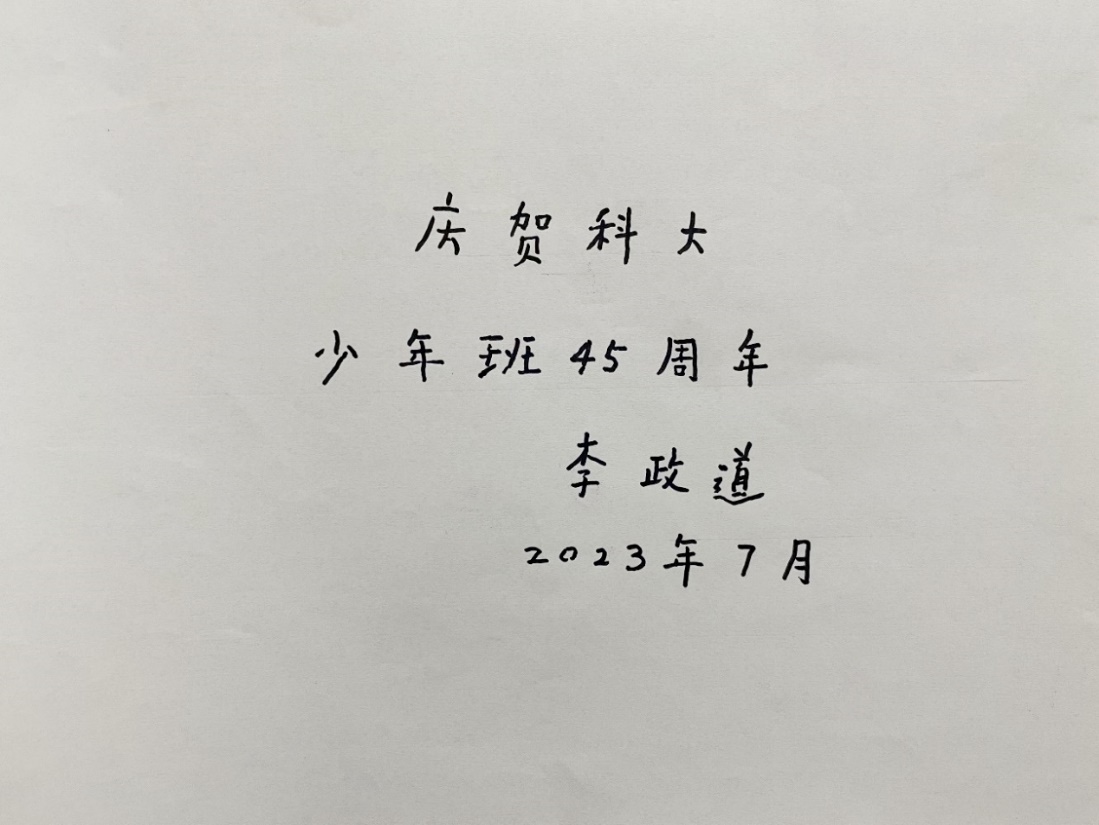 庆贺科大
少年班45周年
李政道
2023年7月